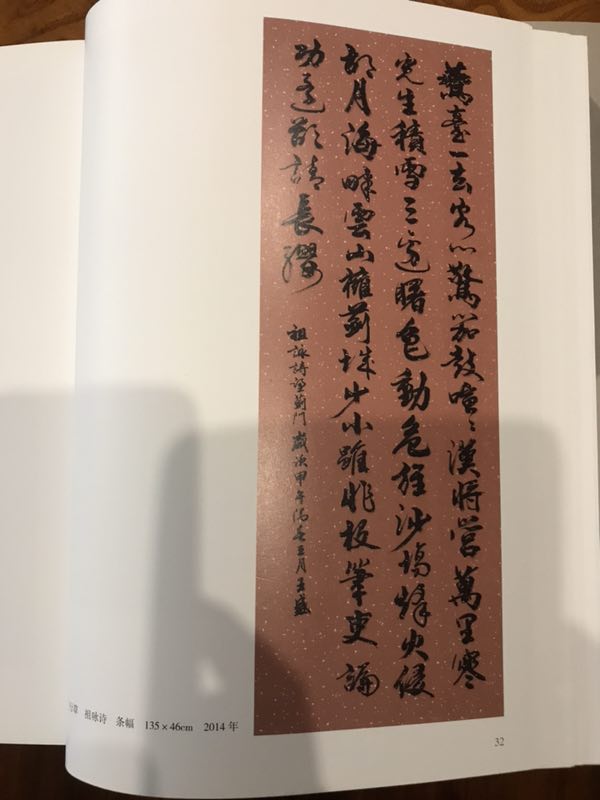 燕臺一去客心驚笳鼓喧〻漢將營萬里寒
光生積雪三邊曙色動危旌沙場烽火侵
胡月海畔雲山擁薊城少小雖非投筆吏論
功還欲請長纓
祖詠詩望薊門歲次甲午 月
草 祖咏诗 条幅 135×46cm 2014年
32